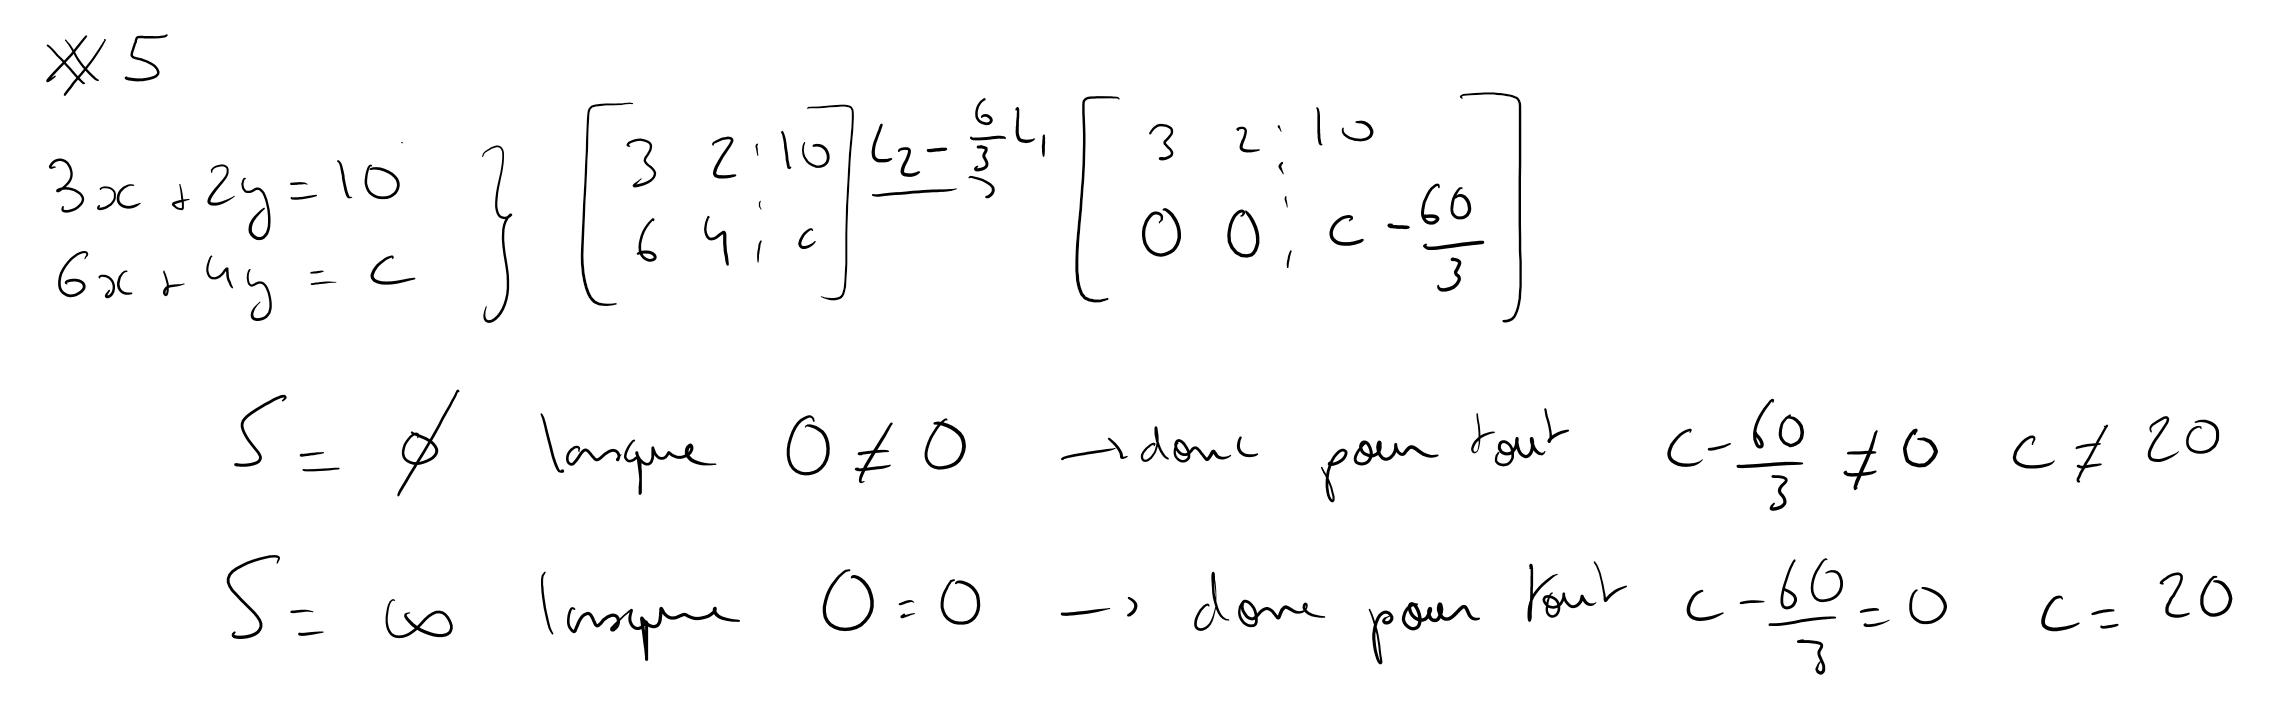 # 5
3x + 2y = 10
6x + 4y = c
} [ 3 2 ¦ 10 ] L₂ - 6/3 L₁ [ 3 2 ¦ 10 ]
[ 6 4 ¦ c ] → [ 0 0 ¦ c - 60/3 ]
S = ∅ lorsque 0 ≠ 0 → donc pour tout c - 60/3 ≠ 0 c ≠ 20
S = ∞ lorsque 0 = 0 → donc pour tout c - 60/3 = 0 c = 20